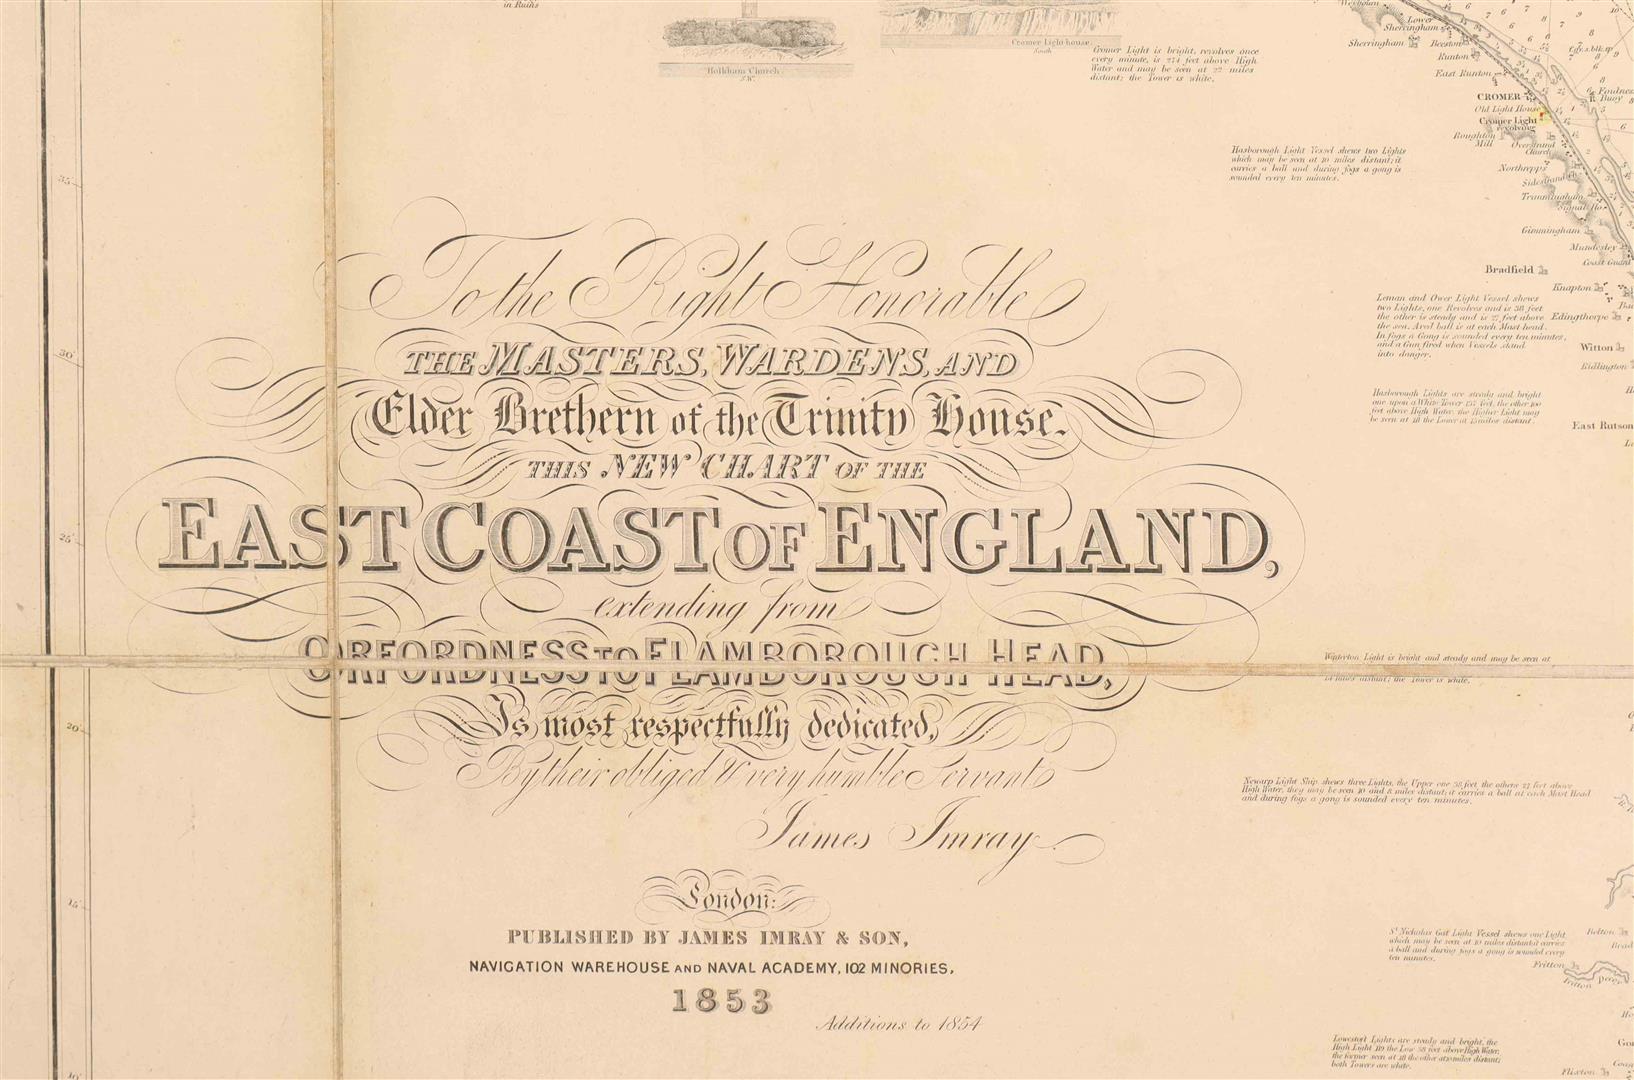 in Ruins
Holkham Church.
S.W.
Cromer Light-house.
South
Cromer Light is bright, revolves once
every minute, is 274 feet above High
Water and may be seen at 22 miles
distant; the Tower is white.
Weybourn
Lower
Sherringham
Sherringham
Beeston
Runton
East Runton
CROMER
Old Light House
Cromer Light
revolving
Roughton
Mill
Overstrand
Church
Northrepps
Sidestrand Ch.
Trimmingham
Signal Ho.
Gimmingham
Mundesley
Coast Guard
Bradfield
Knapton
Edingthorpe
Witton
Ridlington
East Ruston
Foulness
Buoy
Hasborough Light Vessel shews two Lights
which may be seen at 10 miles distant; it
carries a ball and during fogs a gong is
sounded every ten minutes.
Leman and Ower Light Vessel shews
two Lights, one Revolves and is 38 feet
the other is steady and is 27 feet above
the sea. A red ball is at each Mast-head.
In fogs a Gong is sounded every ten minutes,
and a Gun fired when Vessels stand
into danger.
Hasborough Lights are steady and bright
one upon a White Tower 137 feet, the other 100
feet above High Water. the Higher Light may
be seen at 18 the Lower at 15 miles distant.
35'
30'
25'
20'
15'
10'
To the Right Honorable
THE MASTERS, WARDENS, AND
Elder Brethern of the Trinity House.
THIS NEW CHART OF THE
EAST COAST OF ENGLAND,
extending from
ORFORDNESS TO FLAMBOROUGH HEAD,
Is most respectfully dedicated,
By their obliged & very humble Servant
James Imray
London:
PUBLISHED BY JAMES IMRAY & SON,
NAVIGATION WAREHOUSE AND NAVAL ACADEMY, 102 MINORIES.
1853
Additions to 1854
Winterton Light is bright and steady and may be seen at
miles distant; the Tower is white.
Newarp Light Ship shews three Lights, the Upper one 38 feet, the others 23 feet above
High Water, they may be seen 10 and 8 miles distant; it carries a ball at each Mast Head
and during fogs a gong is sounded every ten minutes.
St Nicholas Gat Light Vessel shews one Light
which may be seen at 10 miles distant it carries
a ball and during fogs a gong is sounded every
ten minutes.
Belton
Fritton
Fritton Decoy
Lowestoft Lights are steady and bright, the
High Light 119 the Low 38 feet above High Water,
the former seen at 18 the other at 10 miles distant;
both Towers are white.
Flixton